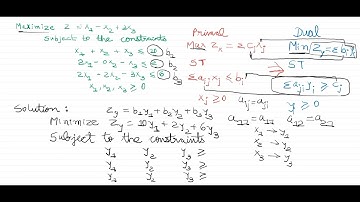 Maximize Z = x₁ - x₂ + 2x₃
Subject to the constraints
x₁ + x₂ + x₃ ≤ 10 b₁
2x₁ - 0x₂ - x₃ ≤ b₂
2x₁ - 2x₂ - 3x₃ ≤ 6 b₃
x₁, x₂, x₃ ≥ 0
Primal
Max Zx = Σ cj xj
ST
Σ aij xj ≤ bi
xj ≥ 0
Dual
Min Zy = Σ bi yi
ST
Σ aji yi ≥ cj
aij = aji y ≥ 0
a12 = a21
x₁ → y₁
x₂ → y₂
x₃ → y₃
Solution :
Zy = b₁y₁ + b₂y₂ + b₃y₃
Minimize Zy = 10y₁ + 2y₂ + 6y₃
Subject to the constraints
y₁ y₂ y₃ ≥
y₁ y₂ y₃ ≥
y₁ y₂ y₃ ≥